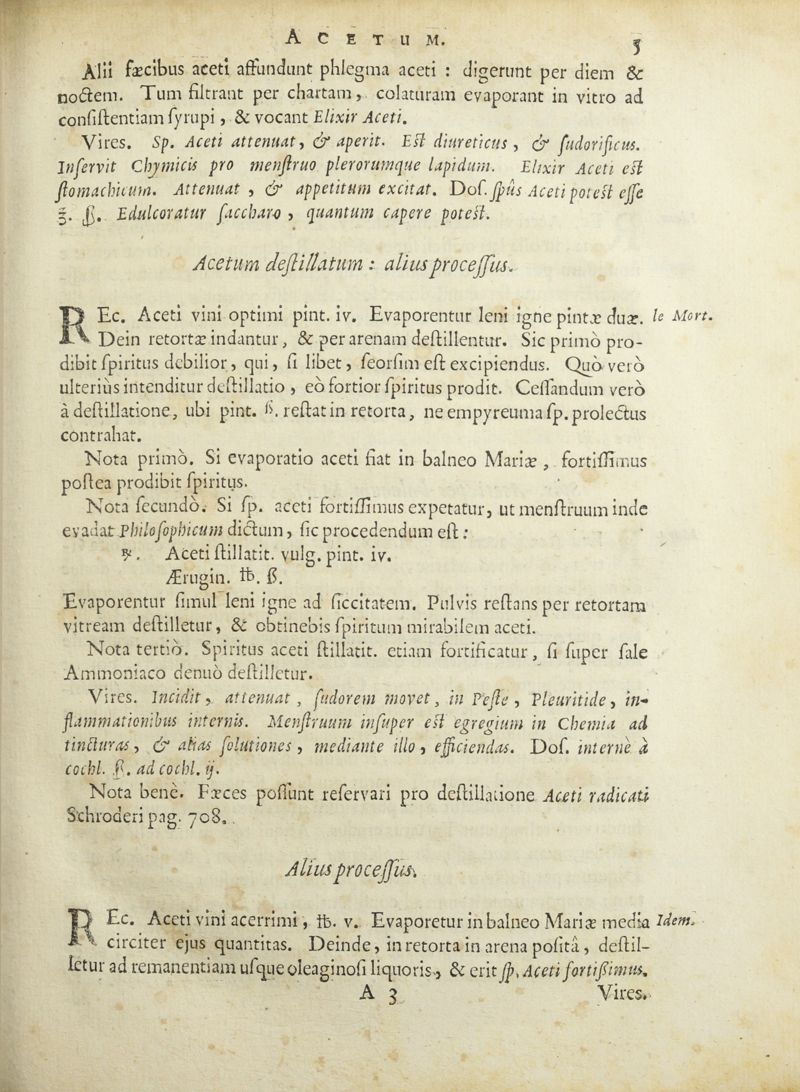 ACETUM. 5
Alii fæcibus aceti affundunt phlegma aceti : digerunt per diem &
noctem. Tum filtrant per chartam, colaturam evaporant in vitro ad
consistentiam syrupi, & vocant Elixir Aceti.
Vires. Sp. Aceti attenuat, & aperit. Est diureticus, & sudorificus.
Inservit Chymicis pro menstruo plerorumque lapidum. Elixir Aceti est
stomachicum. Attenuat, & appetitum excitat. Dos. spûs Aceti potest esse
℥. ß. Edulcoratur saccharo, quantum capere potest.
Acetum destillatum : alius processus.
REc. Aceti vini optimi pint. iv. Evaporentur leni igne pintæ duæ. le Mort.
Dein retortæ indantur, & per arenam destillentur. Sic primò pro-
dibit spiritus debilior, qui, si libet, seorsim est excipiendus. Quò vero
ulteriùs intenditur destillatio, eò fortior spiritus prodit. Cessandum verò
à destillatione, ubi pint. ß. restat in retorta, ne empyreuma sp. prolectus
contrahat.
Nota primò. Si evaporatio aceti fiat in balneo Mariæ, fortissimus
postea prodibit spiritus.
Nota secundò. Si sp. aceti fortissimus expetatur, ut menstruum inde
evadat Philosophicum dictum, sic procedendum est :
℞. Aceti stillatit. vulg. pint. iv.
Ærugin. ℔. ß.
Evaporentur simul leni igne ad siccitatem. Pulvis restans per retortam
vitream destilletur, & obtinebis spiritum mirabilem aceti.
Nota tertiò. Spiritus aceti stillatit. etiam fortificatur, si super sale
Ammoniaco denuò destilletur.
Vires. Incidit, attenuat, sudorem movet, in Peste, Pleuritide, in-
flammationibus internis. Menstruum insuper est egregium in Chemia ad
tincturas, & alias solutiones, mediante illo, efficiendas. Dos. internè à
cochl. ß. ad cochl. ij.
Nota benè. Fæces possunt reservari pro destillatione Aceti radicati
Schroderi pag. 708.
Alius processus.
REc. Aceti vini acerrimi, ℔. v. Evaporetur in balneo Mariæ media Idem.
circiter ejus quantitas. Deinde, in retorta in arena posita, destil-
letur ad remanentiam usque oleaginosi liquoris, & erit sp. Aceti fortissimus.
A 3 Vires.